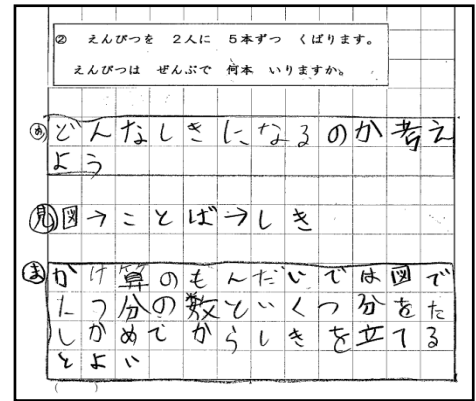 ② えんぴつを 2人に 5本ずつ くばります。
えんぴつは ぜんぶで 何本 いりますか。
め どんなしきになるのか考え
よう
見 図→ことば→しき
ま かけ算のもんだいでは図で
1つ分の数といくつ分をた
しかめてからしきを立てる
とよい
( )